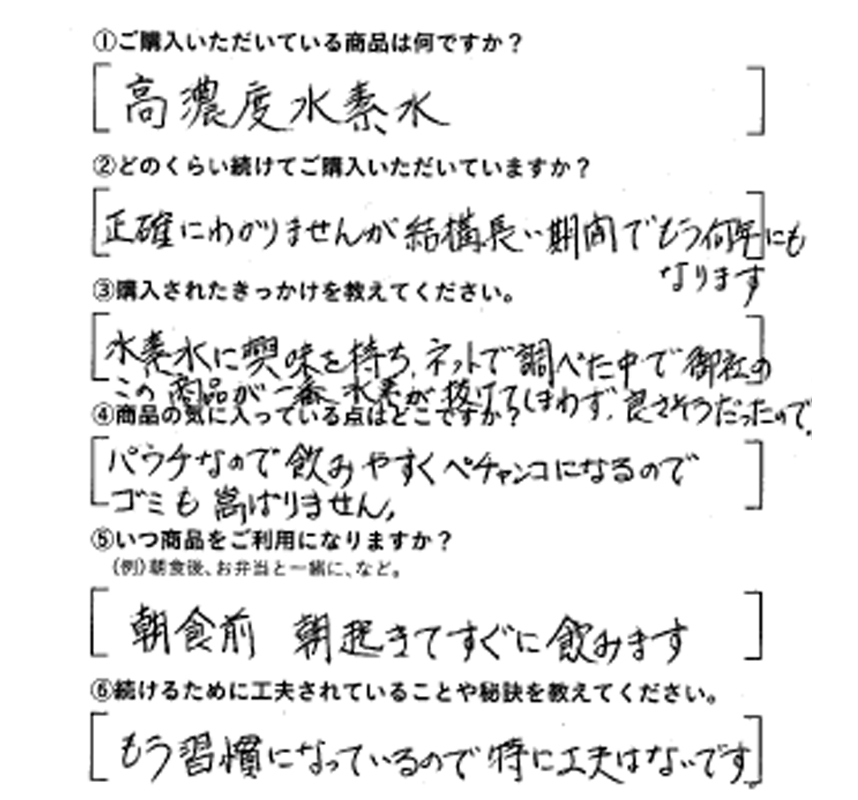 ①ご購入いただいている商品は何ですか？
高濃度水素水
②どのくらい続けてご購入いただいていますか？
正確にわかりませんが結構長い期間でもう何年にも
なります
③購入されたきっかけを教えてください。
水素水に興味を持ち、ネットで調べた中で御社の
この商品が一番、水素が抜けてしまわず、良さそうだったので。
④商品の気に入っている点はどこですか？
パウチなので飲みやすくペチャンコになるので
ゴミも嵩ばりません。
⑤いつ商品をご利用になりますか？
（例）朝食後、お弁当と一緒に、など。
朝食前 朝起きてすぐに飲みます
⑥続けるために工夫されていることや秘訣を教えてください。
もう習慣になっているので特に工夫はないです。